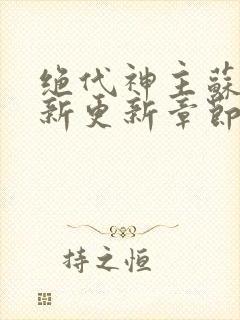 绝代神主蘇
新更新章節
持之恒